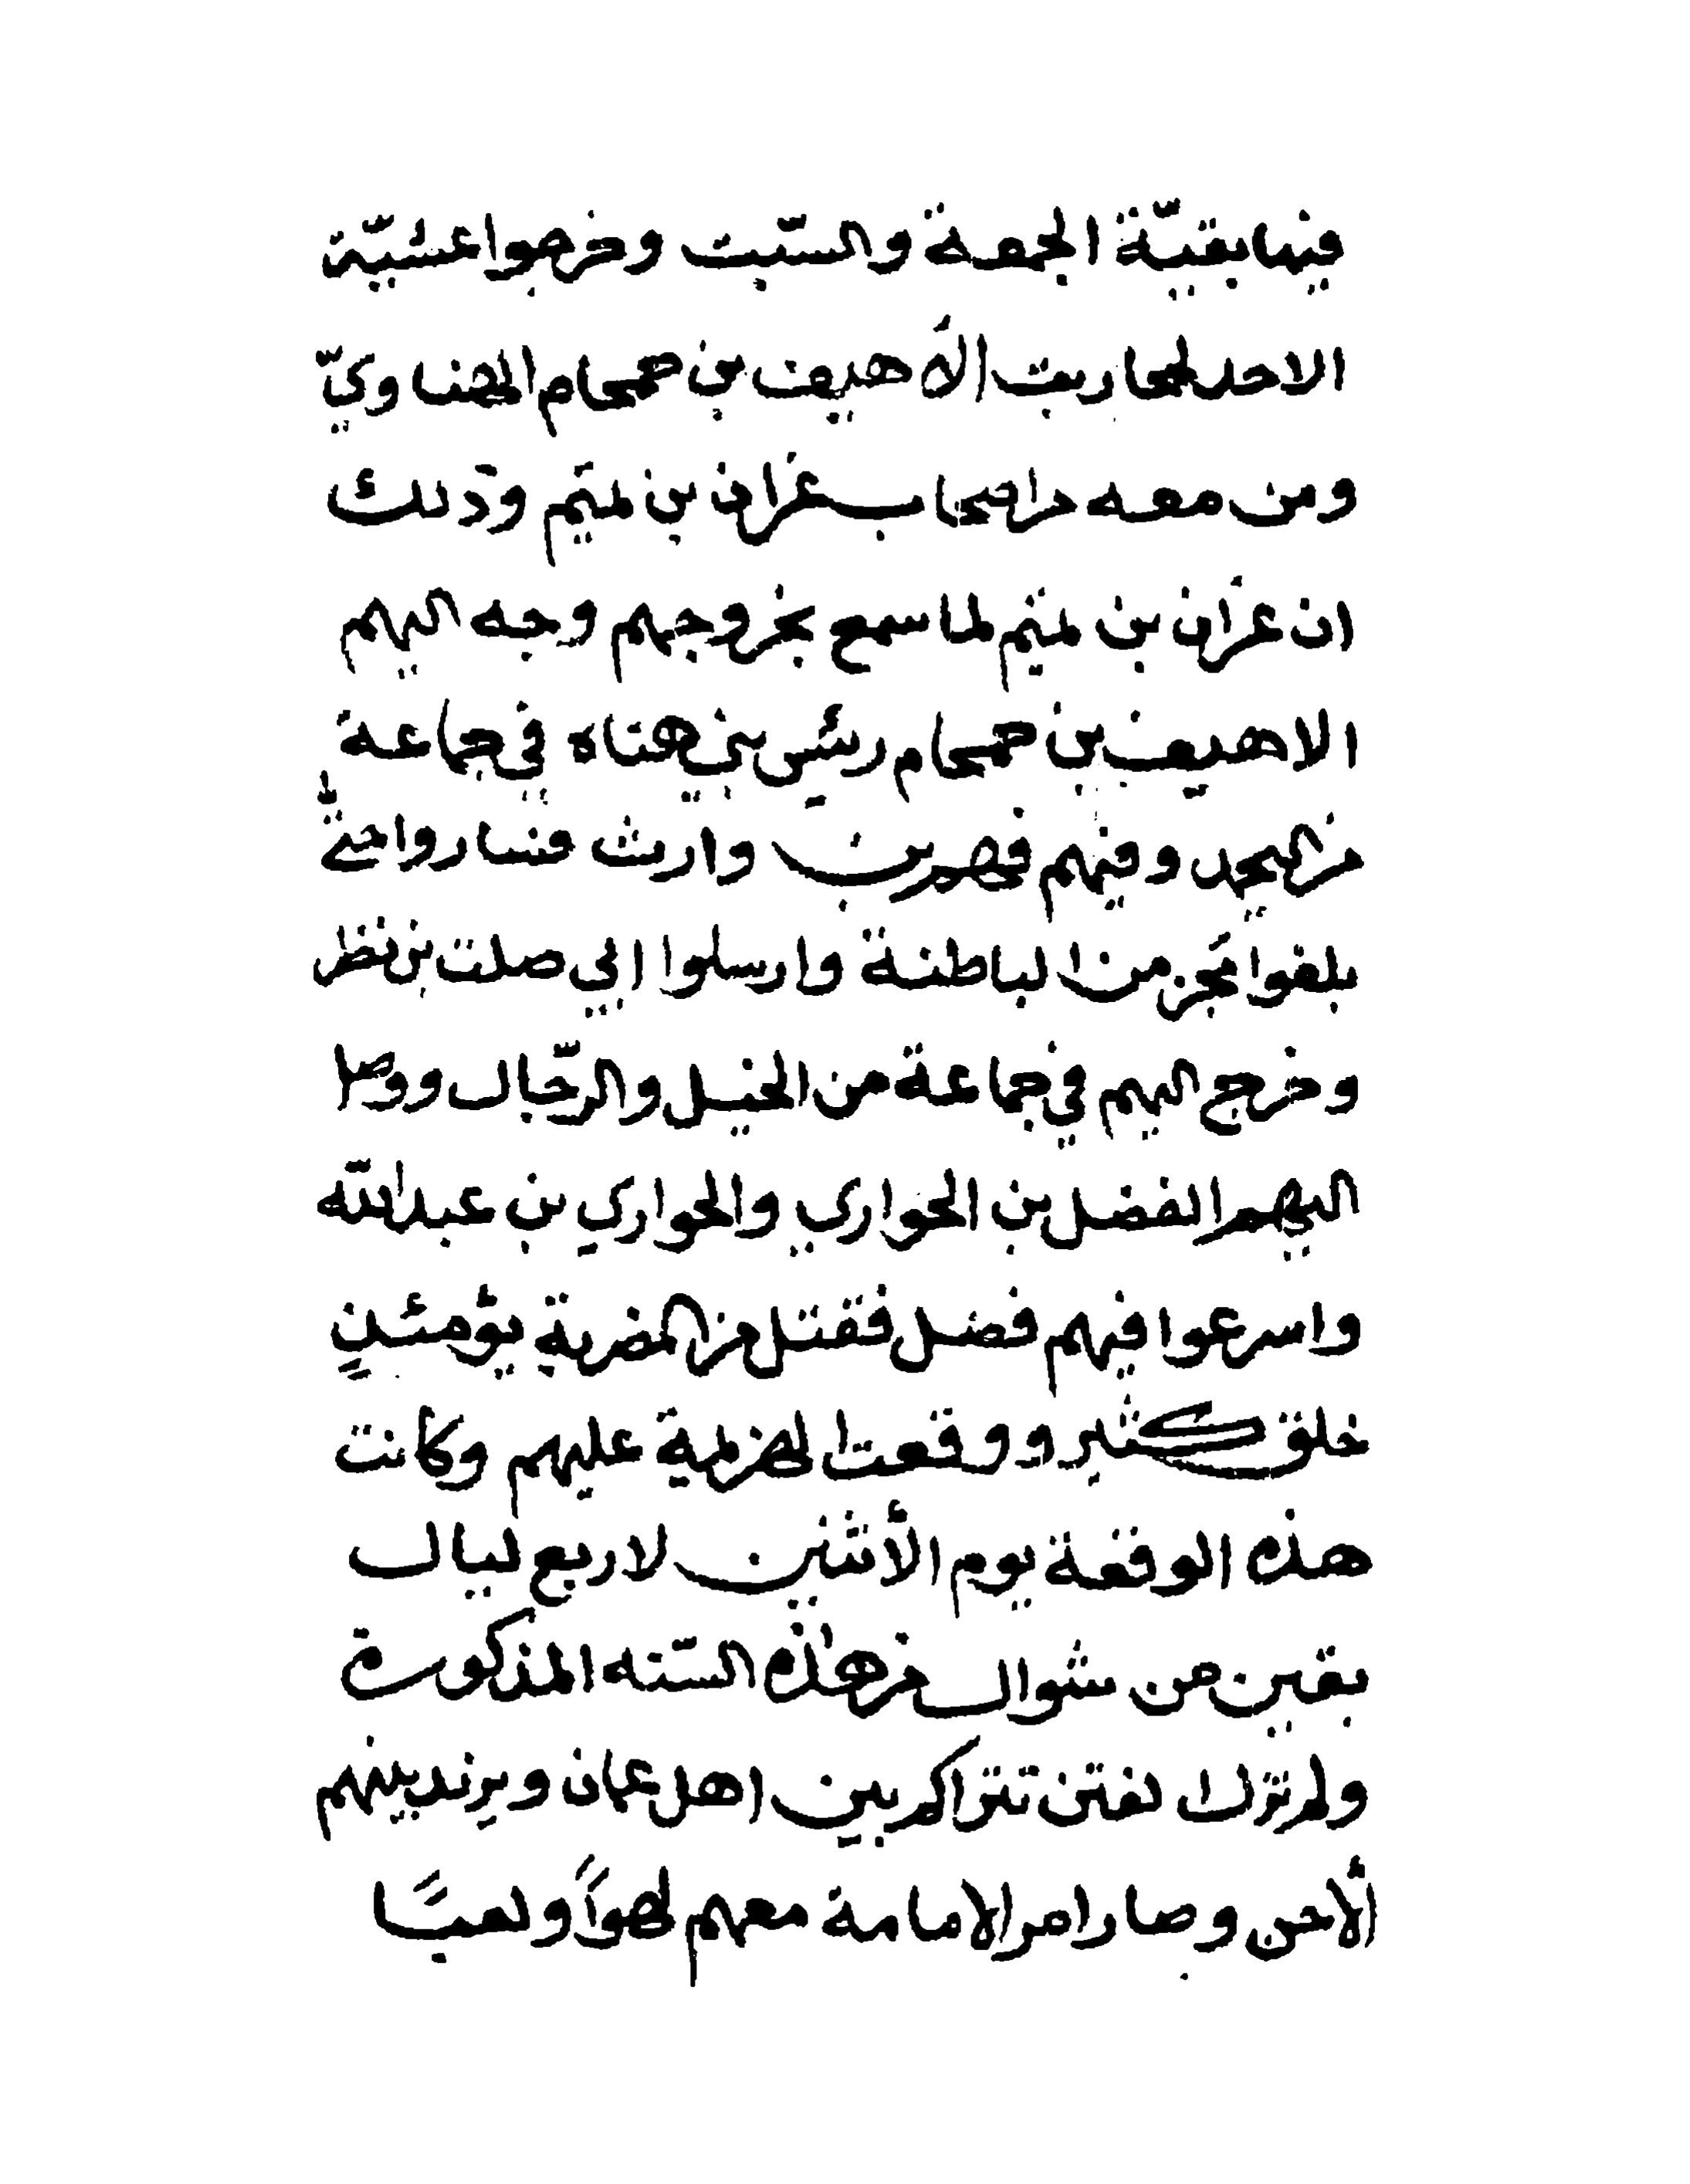 فيها بقيّة الجمعة والسّبت وخرجوا عشيّة
الاحد لمحاربة الأهيف بن حمحام الهناويّ
ومن معه من اصحاب عزان بن تميم وذلك
ان عزان بن تميم لما سمع بخروجهم وجه اليهم
الاهيف بن حمحام رئيس بني هناه في جماعة
من اليحمد وفيهم فهم بن وارث فساروا حتّى
بلغوا مجز من الباطنة وارسلوا الي صلت بن نظر
وخرج اليهم في جماعة من الخيل والرّجال ووصل
اليهم الفضل بن الحواري والحواري بن عبدالله
واسرعوا فيهم فضل فقتل من المضرية يؤمئذٍ
خلق كثير ووقعت الهزيمة عليهم وكانت
هذه الوقعة يوم الأثنين لاربع ليال
بقين من شوال من هذه السّنه المذكورة
ولم تزل الفتن تتراكم بين اهل عمان ويزند بينهم
الأحن وصار امر الامامة معهم لهواً ولعبًا